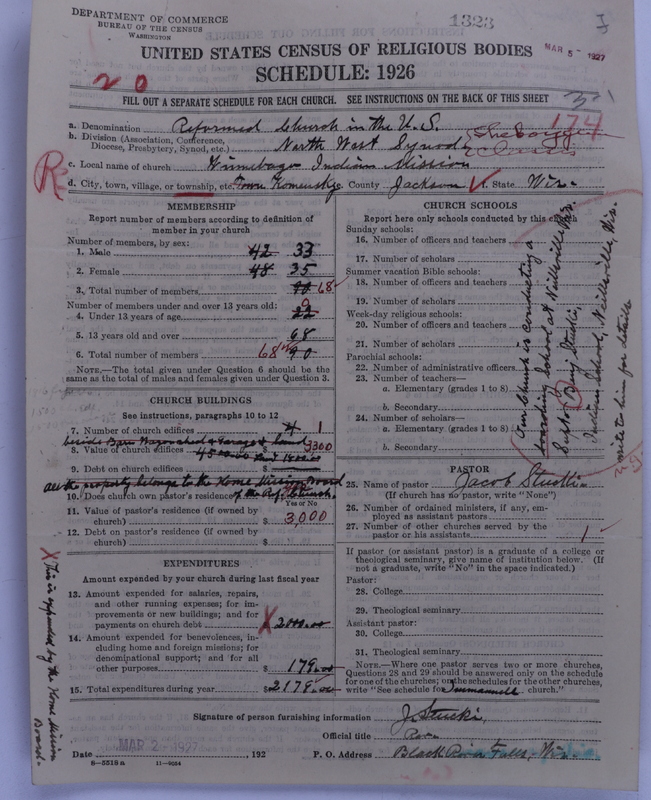 DEPARTMENT OF COMMERCE
BUREAU OF THE CENSUS
WASHINGTON
1323
MAR 5 1927
UNITED STATES CENSUS OF RELIGIOUS BODIES
SCHEDULE: 1926
20
FILL OUT A SEPARATE SCHEDULE FOR EACH CHURCH. SEE INSTRUCTIONS ON THE BACK OF THIS SHEET
174
a. Denomination Reformed Church in the U.S.
b. Division (Association, Conference, Diocese, Presbytery, Synod, etc.) North West Synod Sheboygan Classis
c. Local name of church Winnebago Indian Mission
d. City, town, village, or township, etc. Town Komensky e. County Jackson f. State Wis.
MEMBERSHIP
Report number of members according to definition of member in your church
Number of members, by sex:
1. Male 42 33
2. Female 48 35
3. Total number of members 90 68
Number of members under and over 13 years old:
4. Under 13 years of age 22 0
5. 13 years old and over 68
6. Total number of members 68 90
NOTE.—The total given under Question 6 should be the same as the total of males and females given under Question 3.
CHURCH BUILDINGS
See instructions, paragraphs 10 to 12
7. Number of church edifices 4 1
8. Value of church edifices 3300
9. Debt on church edifices
all the property belongs to the Home Mission Board of the Ref. Church.
10. Does church own pastor's residence?
Yes or No
11. Value of pastor's residence (if owned by church) $ 3,000
12. Debt on pastor's residence (if owned by church) $
EXPENDITURES
Amount expended by your church during last fiscal year
13. Amount expended for salaries, repairs, and other running expenses; for improvements or new buildings; and for payments on church debt X 2000.00
14. Amount expended for benevolences, including home and foreign missions; for denominational support; and for all other purposes $ 179.00
15. Total expenditures during year $ 2179.00
X This is expended by the Home Mission Board.
CHURCH SCHOOLS
Report here only schools conducted by this church
Sunday schools:
16. Number of officers and teachers
17. Number of scholars
Summer vacation Bible schools:
18. Number of officers and teachers
19. Number of scholars
Week-day religious schools:
20. Number of officers and teachers
21. Number of scholars
Parochial schools:
22. Number of administrative officers
23. Number of teachers—
a. Elementary (grades 1 to 8)
b. Secondary
24. Number of scholars—
a. Elementary (grades 1 to 8)
b. Secondary
Our Church is conducting a
boarding School at Neillsville Wis.
Supt. Benj. Stucki,
Indian School, Neillsville, Wis.
write to him for details
PASTOR
25. Name of pastor Jacob Stucki
(If church has no pastor, write "None")
26. Number of ordained ministers, if any, employed as assistant pastors
27. Number of other churches served by the pastor or his assistants 1
If pastor (or assistant pastor) is a graduate of a college or theological seminary, give name of institution below. (If not a graduate, write "No" in the space indicated.)
Pastor:
28. College
29. Theological seminary
Assistant pastor:
30. College
31. Theological seminary
NOTE.—Where one pastor serves two or more churches, Questions 28 and 29 should be answered only on the schedule for one of the churches; on the schedules for the other churches, write "See schedule for Immanuel church."
Signature of person furnishing information J. Stucki,
Official title Rev.
Date MAR 2 - 1927, 192 P. O. Address Black River Falls, Wis.
8—5518a 11—9084